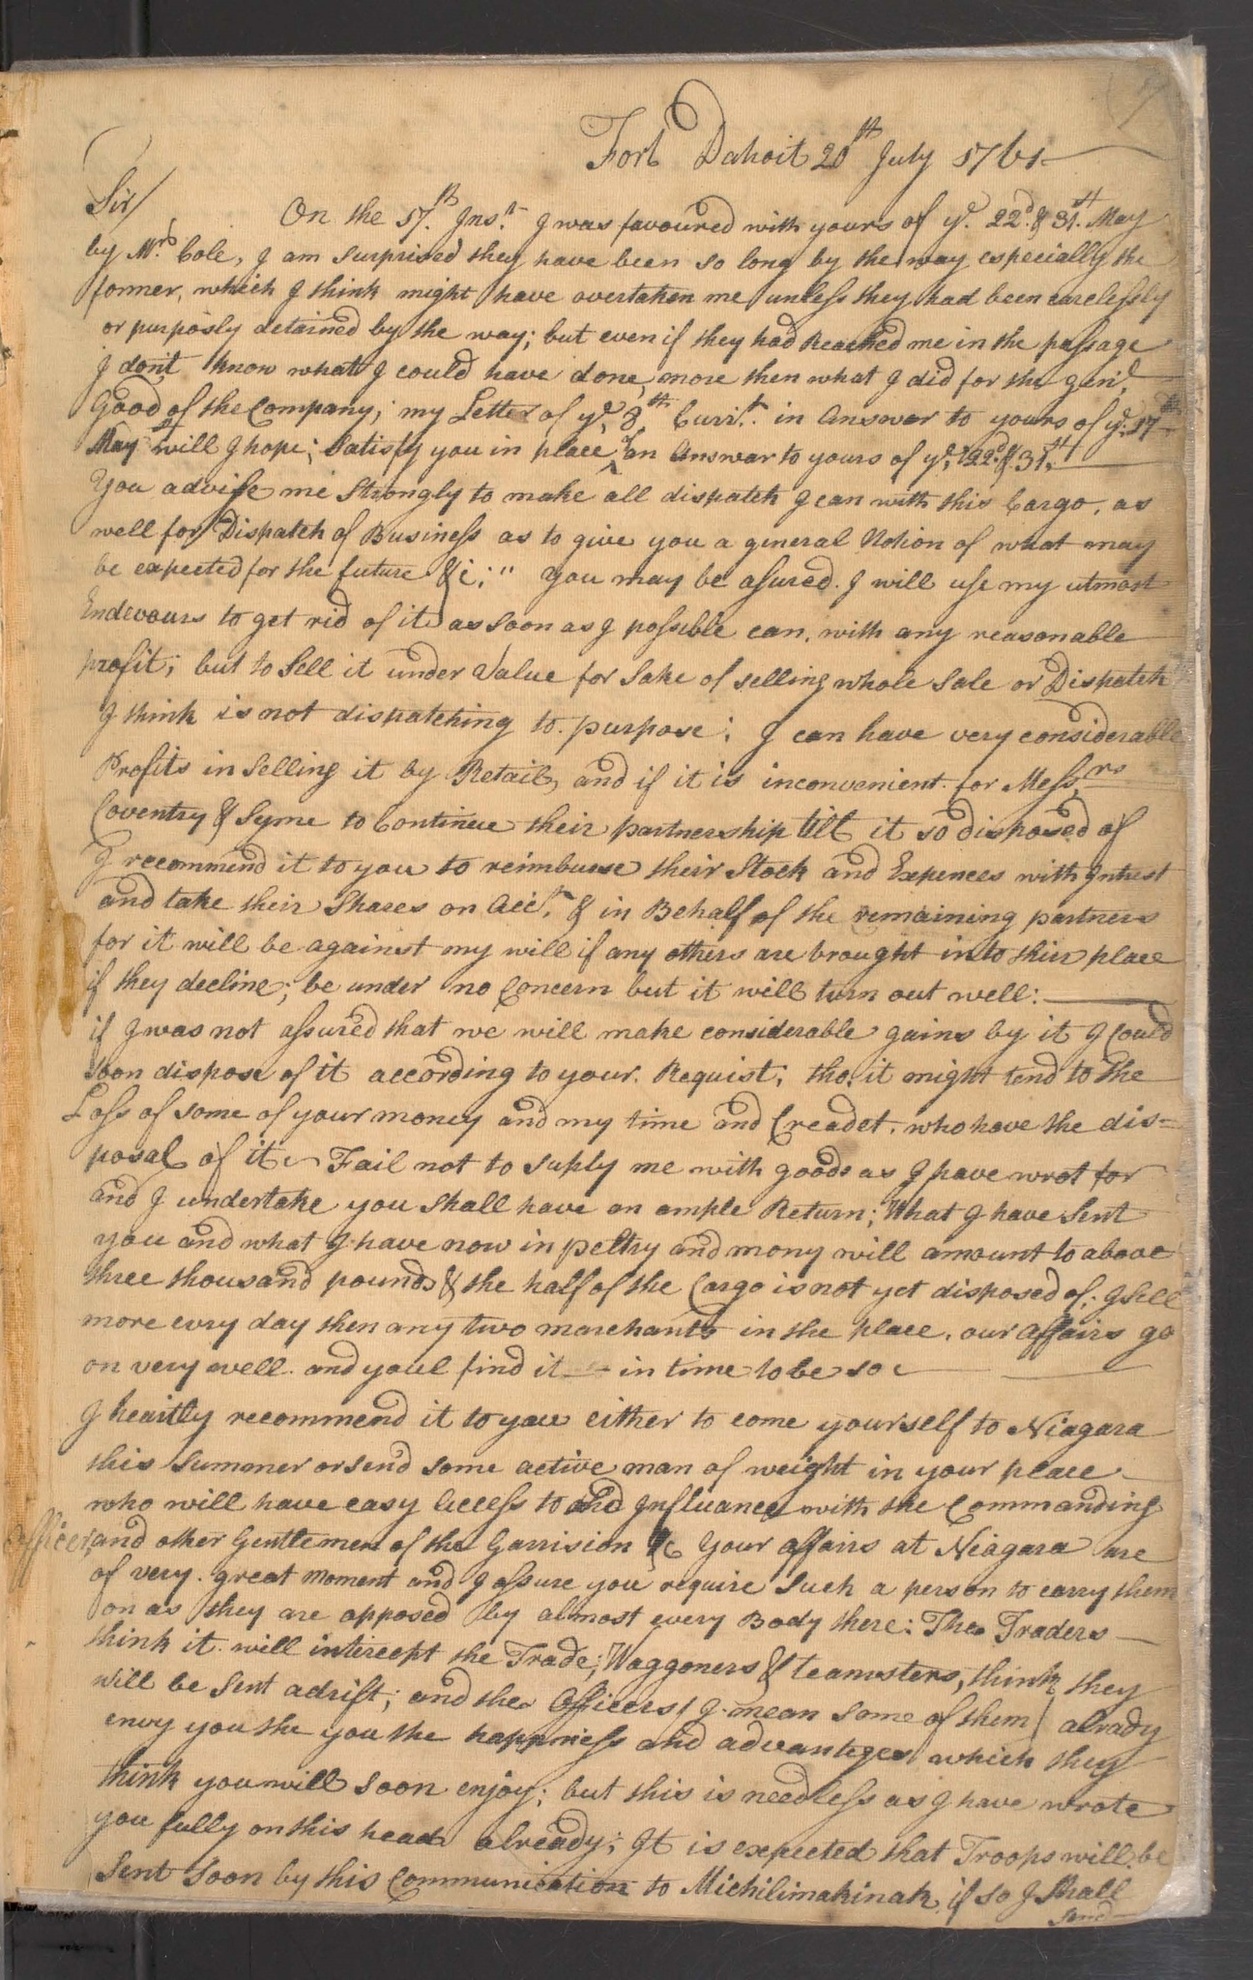 Fort Dahoit 20th July 1761
Sir/ On the 17th Inst. I was favoured with yours of ye. 22d. & 31st. May
by Mrs. Cole, I am surprised they have been so long by the way especially the
former, which I think might have overtaken me unless they had been carelessly
or purposly detained by the way; but even if they had Reached me in the passage
I dont know what I could have done more then what I did for the genl.
Good of the Company; my Letter of ye. 8th Currt. in Answar to yours of ye. 17th
May will I hope; satisfy you in place of an Answar to yours of ye. 22d. & 31st.
You advise me strongly to make all dispatch I can with this Cargo, as
well for Dispatch of Business as to give you a general Notion of what may
be expected for the future &c;" you may be assured I will use my utmost
Endevours to get rid of it as soon as I possible can, with any reasonable
profit; but to Sell it under Value for Sake of selling whole Sale or Dispatch
I think is not dispatching to purpose; I can have very considerable
Profits in Selling it by Retail, and if it is inconvenient for Messrs
Coventry & Syme to Continue their partnership till it so disposed of
I recommend it to you to reimburse their Stock and Expences with Intrest
and take their Shares on Acct. & in Behalf of the remaining partners
for it will be against my will if any others are brought in to thier place
if they decline; be under no Concern but it will turn out well:
if I was not assured that we will make considerable gains by it I could
soon dispose of it according to your Requist; tho. it might tend to the
Loss of some of your money and my time and Creadet, who have the dis=
posal of it Fail not to suply me with goods as I have wrot for
and I undertake you shall have an ample Return; What I have Sent
you and what I have now in peltry and mony will amount to above
three thousand pounds & the half of the Cargo is not yet disposed of; I Sell
more evry day then any two marchants in the place, our Affairs go
on very well and youl find it in time to be so
I heartly recommend it to you either to come yourself to Niagara
this Summer or send some active man of weight in your place
who will have easy Access to and Influance with the Commanding
officer and other Gentlemen of the Garrision &c Your affairs at Niagara are
of very great moment and I assure you require Such a person to carry them
on as they are opposed by almost every Body there: The Traders
think it will intercept the Trade; Waggoners & teamsters, think they
will be Sent adrift; and the Officers/ I mean some of them/ alrady
envy you the you the happiness and advantages which they
think you will soon enjoy; but this is needless as I have wrote
you fully on this head already; It is expected that Troops will be
Sent Soon by this Communication to Michilimakinak if so I Shall
send